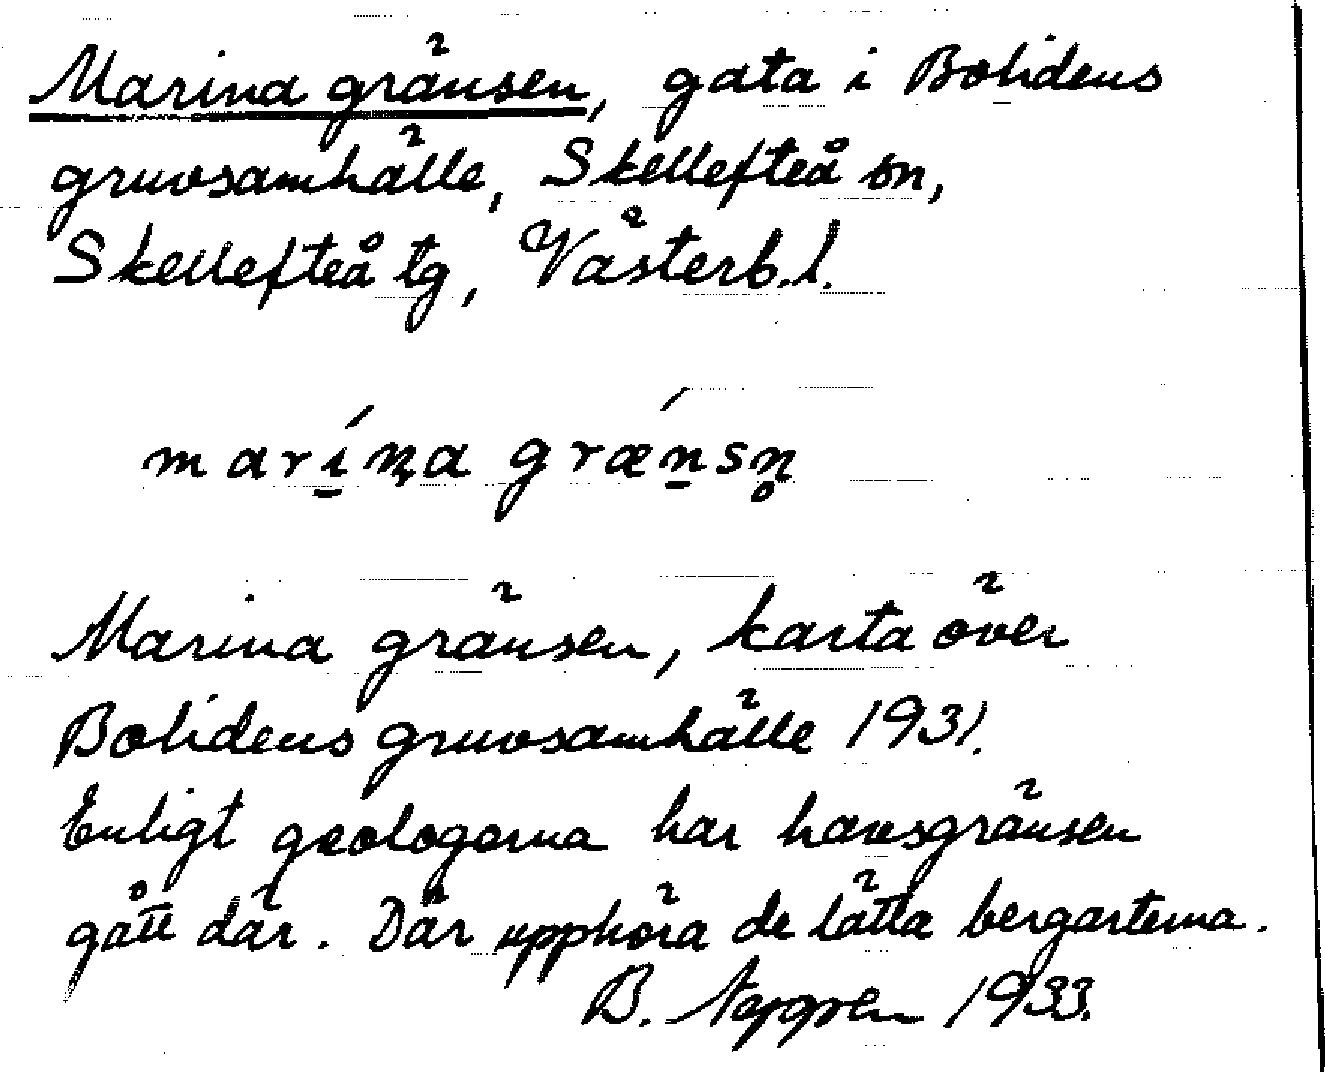 Marina gränsen, gata i Bolidens
gruvsamhälle, Skellefteå sn,
Skellefteå tg, Västerb. l.
marína grænsn̥
Marina gränsen, karta över
Bolidens gruvsamhälle 1931.
Enligt geologerna har havsgränsen
gått där. Där upphöra de lätta bergarterna.
B. 1933.